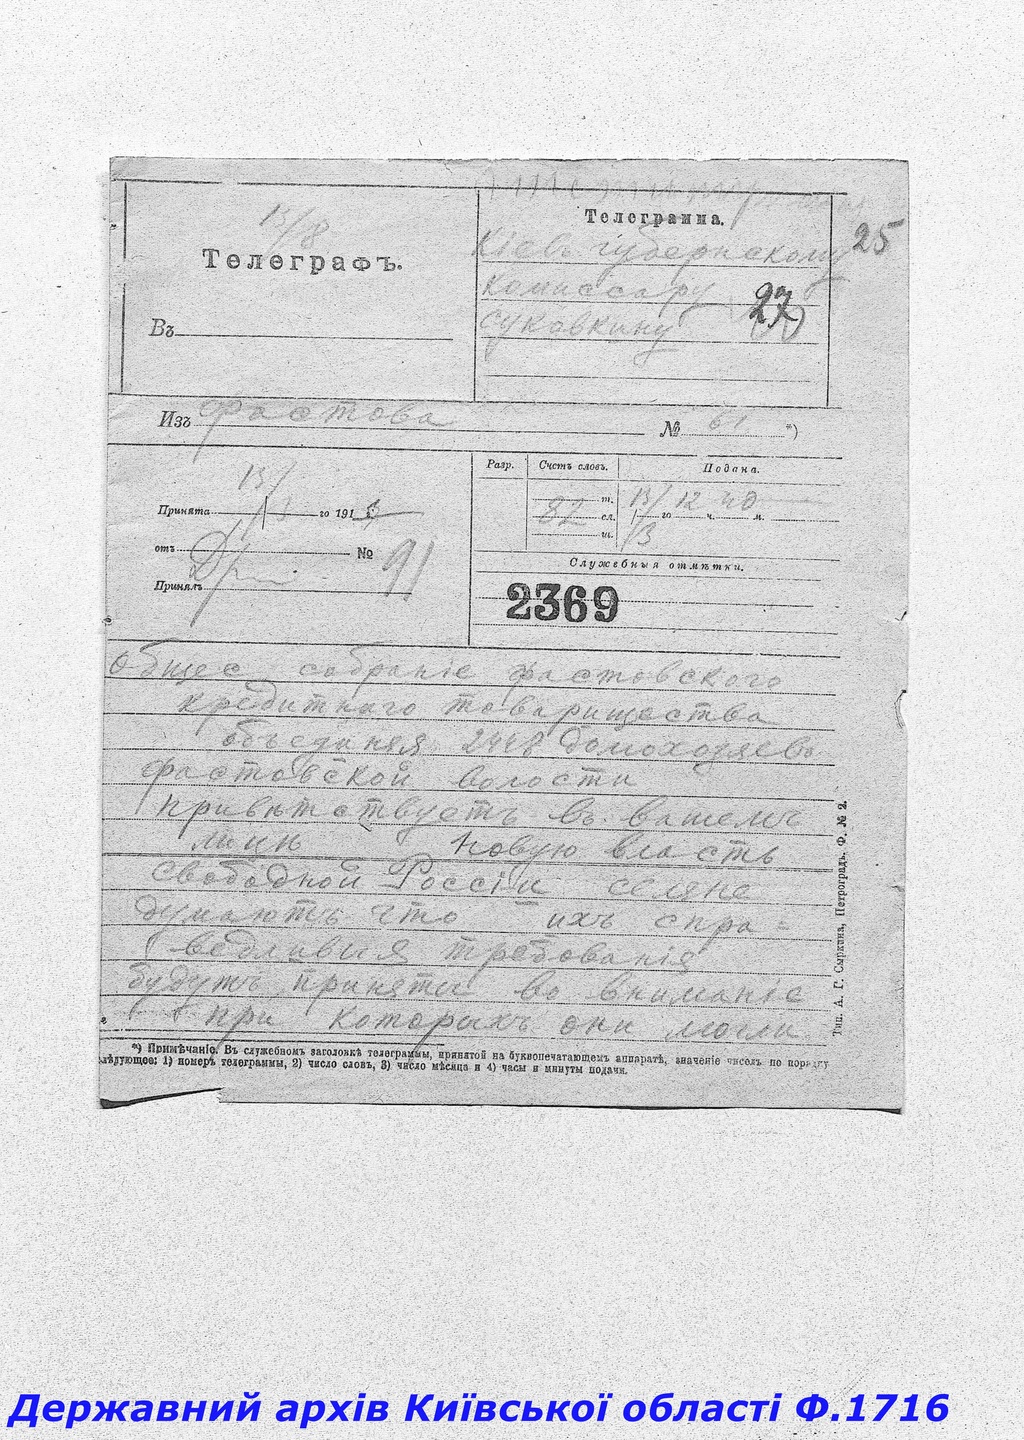 13/8
Телеграфъ.
Въ
Телеграмма.
Кіевъ губернскому
комиссару
Суковкину
25
27
Изъ Фастова
№ 61 *)
Принята 13/3 го 191
отъ № 91
Принялъ
Разр. Счетъ словъ. Подана.
т.
82 сл. 13/3 го 12 ч. 40 м.
ш.
Служебныя отмѣтки.
2369
Общее собраніе фастовского
кредитнаго товарищества
объединяя 2448 домохозяевъ
фастовской волости
привѣтствуетъ въ вашемъ
лицѣ новую власть
свободной Россіи селяне
думаютъ что ихъ спра=
ведливыя требованія
будутъ приняты во вниманіе
при которыхъ они могли
*) Примѣчаніе. Въ служебномъ заголовкѣ телеграммы, принятой на буквопечатающемъ аппаратѣ, значеніе чиселъ по порядку
слѣдующее: 1) номеръ телеграммы, 2) число словъ, 3) число мѣсяца и 4) часы и минуты подачи.
Тип. А. Г. Сыркина, Петроградъ. Ф. № 2.
Державний архів Київської області Ф.1716